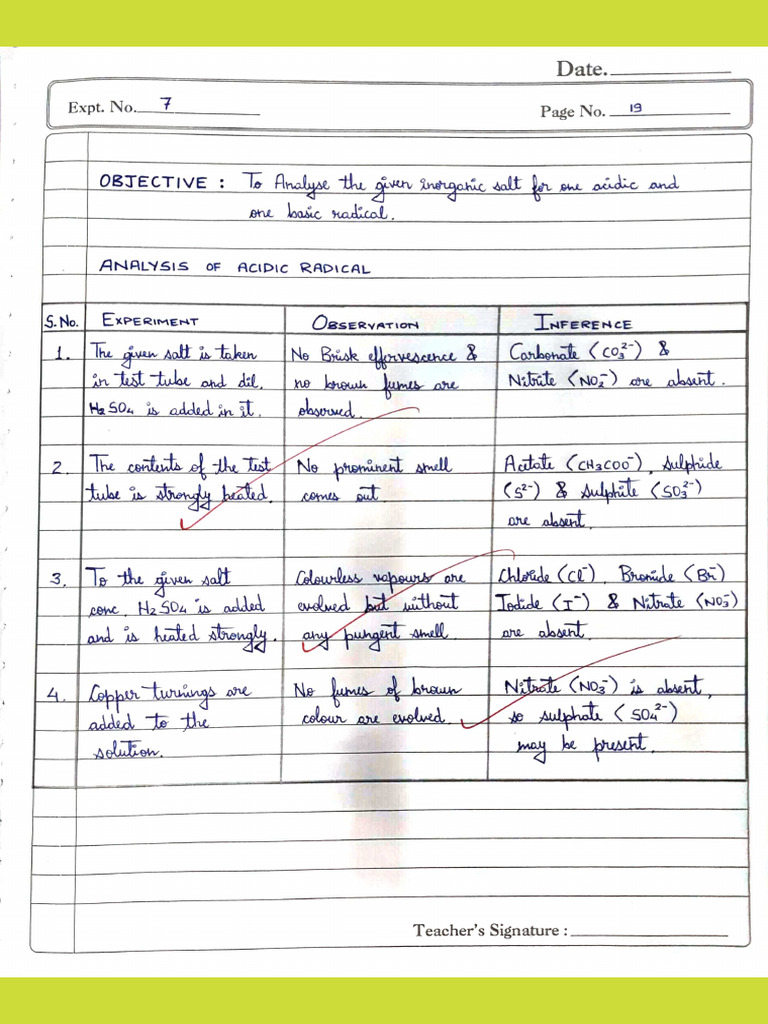 Date.
Expt. No. 7
Page No. 19
OBJECTIVE : To Analyse the given inorganic salt for one acidic and
one basic radical.
ANALYSIS OF ACIDIC RADICAL
S.No. EXPERIMENT OBSERVATION INFERENCE
1. The given salt is taken No Brisk effervescence & Carbonate (CO₃²⁻) &
in test tube and dil. no brown fumes are Nitrite (NO₂⁻) are absent.
H₂SO₄ is added in it. observed.
2. The contents of the test No prominent smell Acetate (CH₃COO⁻), Sulphide
tube is strongly heated. comes out. (S²⁻) & Sulphite (SO₃²⁻)
are absent.
3. To the given salt Colourless vapours are Chloride (Cl⁻), Bromide (Br⁻)
conc. H₂SO₄ is added evolved but without Iodide (I⁻) & Nitrate (NO₃⁻)
and is heated strongly. any pungent smell. are absent.
4. Copper turnings are No fumes of brown Nitrate (NO₃⁻) is absent,
added to the colour are evolved. so sulphate (SO₄²⁻)
solution. may be present.
Teacher's Signature :